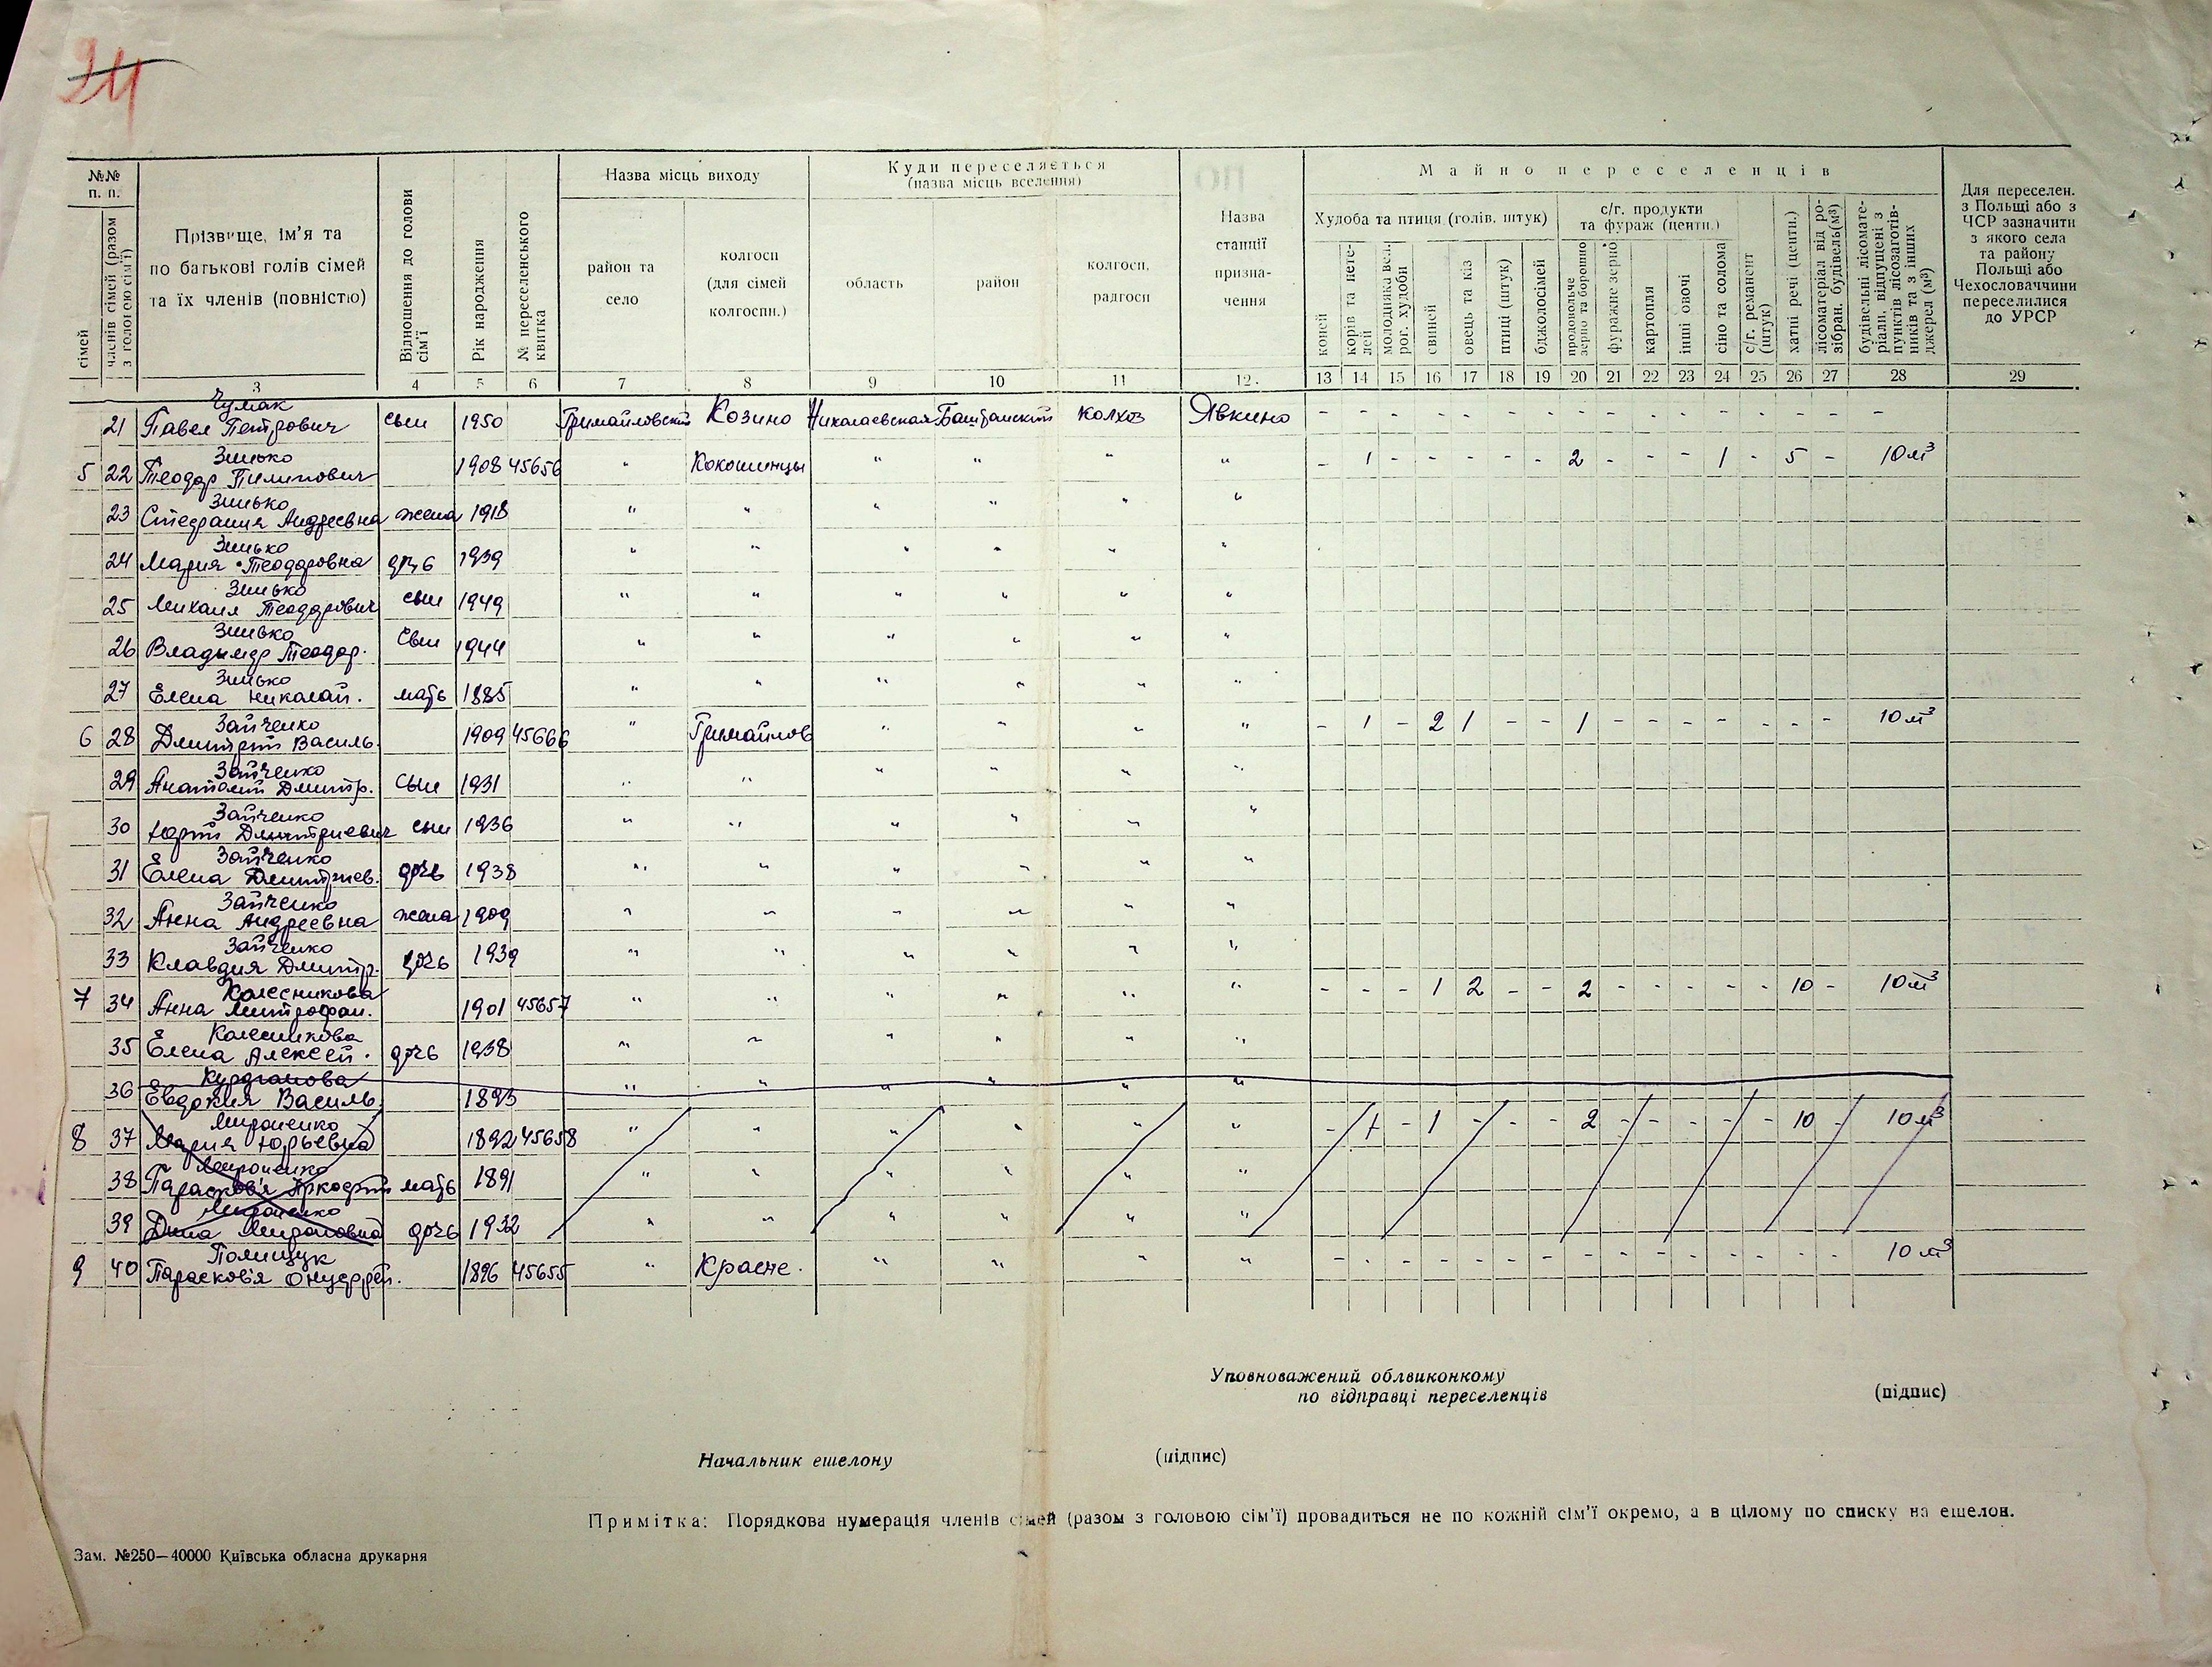 24
№№ п. п.
сімей
членів сімей (разом з головою сім'ї)
Прізвище, ім'я та
по батькові голів сімей
та їх членів (повністю)
Відношення до голови сім'ї
Рік народження
№ переселенського квитка
Назва місць виходу
район та село
колгосп (для сімей колгоспн.)
Куди переселяється
(назва місць вселення)
область
район
колгосп, радгосп
Назва станції призна-чення
Майно переселенців
Худоба та птиця (голів, штук)
коней
корів та нете-лей
молодняка вел. рог. худоби
свиней
овець та кіз
птиці (штук)
бджолосімей
с/г. продукти та фураж (центн.)
продовольче зерно та борошно
фуражне зерно
картопля
інші овочі
сіно та солома
с/г. реманент (штук)
хатні речі (центн.)
лісоматеріал від ро-зібран. будівель(м³)
будівельні лісомате-ріали, відпущені з пунктів лісозаготів-ників та з інших джерел (м³)
Для переселен.
з Польщі або з
ЧСР зазначити
з якого села
та району
Польщі або
Чехословаччини
переселилися
до УРСР
3 4 5 6 7 8 9 10 11 12. 13 14 15 16 17 18 19 20 21 22 23 24 25 26 27 28 29
Чумак
21 Павел Петрович сын 1950 Гримайловский Козино Николаевская Баштанский колхоз Явкино - - - - - - - - - - - - - - - -
Зинько
5 22 Теодор Пилипович 1908 45656 " Кокошинцы " " " " - 1 - - - - - 2 - - - 1 - 5 - 10 м³
Зинько
23 Стефания Андреевна жена 1918 " " " " " "
Зинько
24 Мария Теодоровна дочь 1939 " " " " " "
Зинько
25 Михаил Теодорович сын 1949 " " " " " "
Зинько
26 Владимир Теодор. сын 1944 " " " " " "
Зинько
27 Елена Николай. мать 1885 " " " " " "
Зайченко
6 28 Дмитрий Василь. 1909 45666 " Гримайлов " " " " - 1 - 2 1 - - 1 - - - - - - - 10 м³
Зайченко
29 Анатолий Дмитр. сын 1931 " " " " " "
Зайченко
30 Юрий Дмитриевич сын 1936 " " " " " "
Зайченко
31 Елена Дмитриев. дочь 1938 " " " " " "
Зайченко
32 Анна Андреевна жена 1909 " " " " " "
Зайченко
33 Клавдия Дмитр. дочь 1939 " " " " " "
Колесникова
7 34 Анна Митрофан. 1901 45657 " " " " " " - - - 1 2 - - 2 - - - - - 10 - 10 м³
Колесникова
35 Елена Алексей. дочь 1938 " " " " " "
36 Евдокия Василь. 1893 " " " " " "
Мироненко
8 37 Мария Юрьевна 1892 45658 " " " " " " - 1 - 1 - - - 2 - - - - - 10 - 10 м³
Мироненко
38 мать 1891 " " " " " "
Мироненко
39 Дина Мироновна дочь 1932 " " " " " "
Полищук
9 40 Парасков'я 1896 45655 " Красне. " " " " - - - - - - - - - - - - - - - 10 м³
Уповноважений облвиконкому
по відправці переселенців (підпис)
Начальник ешелону (підпис)
Примітка: Порядкова нумерація членів сімей (разом з головою сім'ї) провадиться не по кожній сім'ї окремо, а в цілому по списку на ешелон.
Зам. №250—40000 Київська обласна друкарня